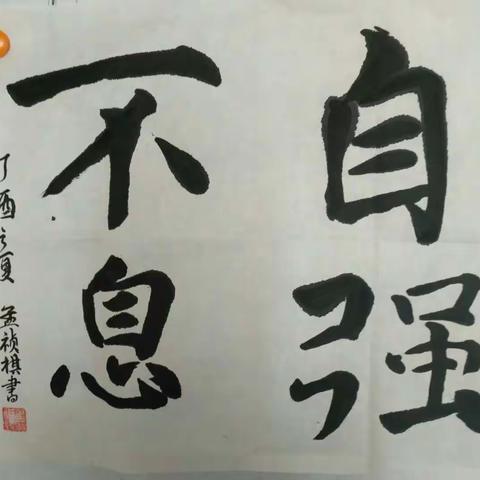 自强
不息
丁酉之夏 孟祯棋書